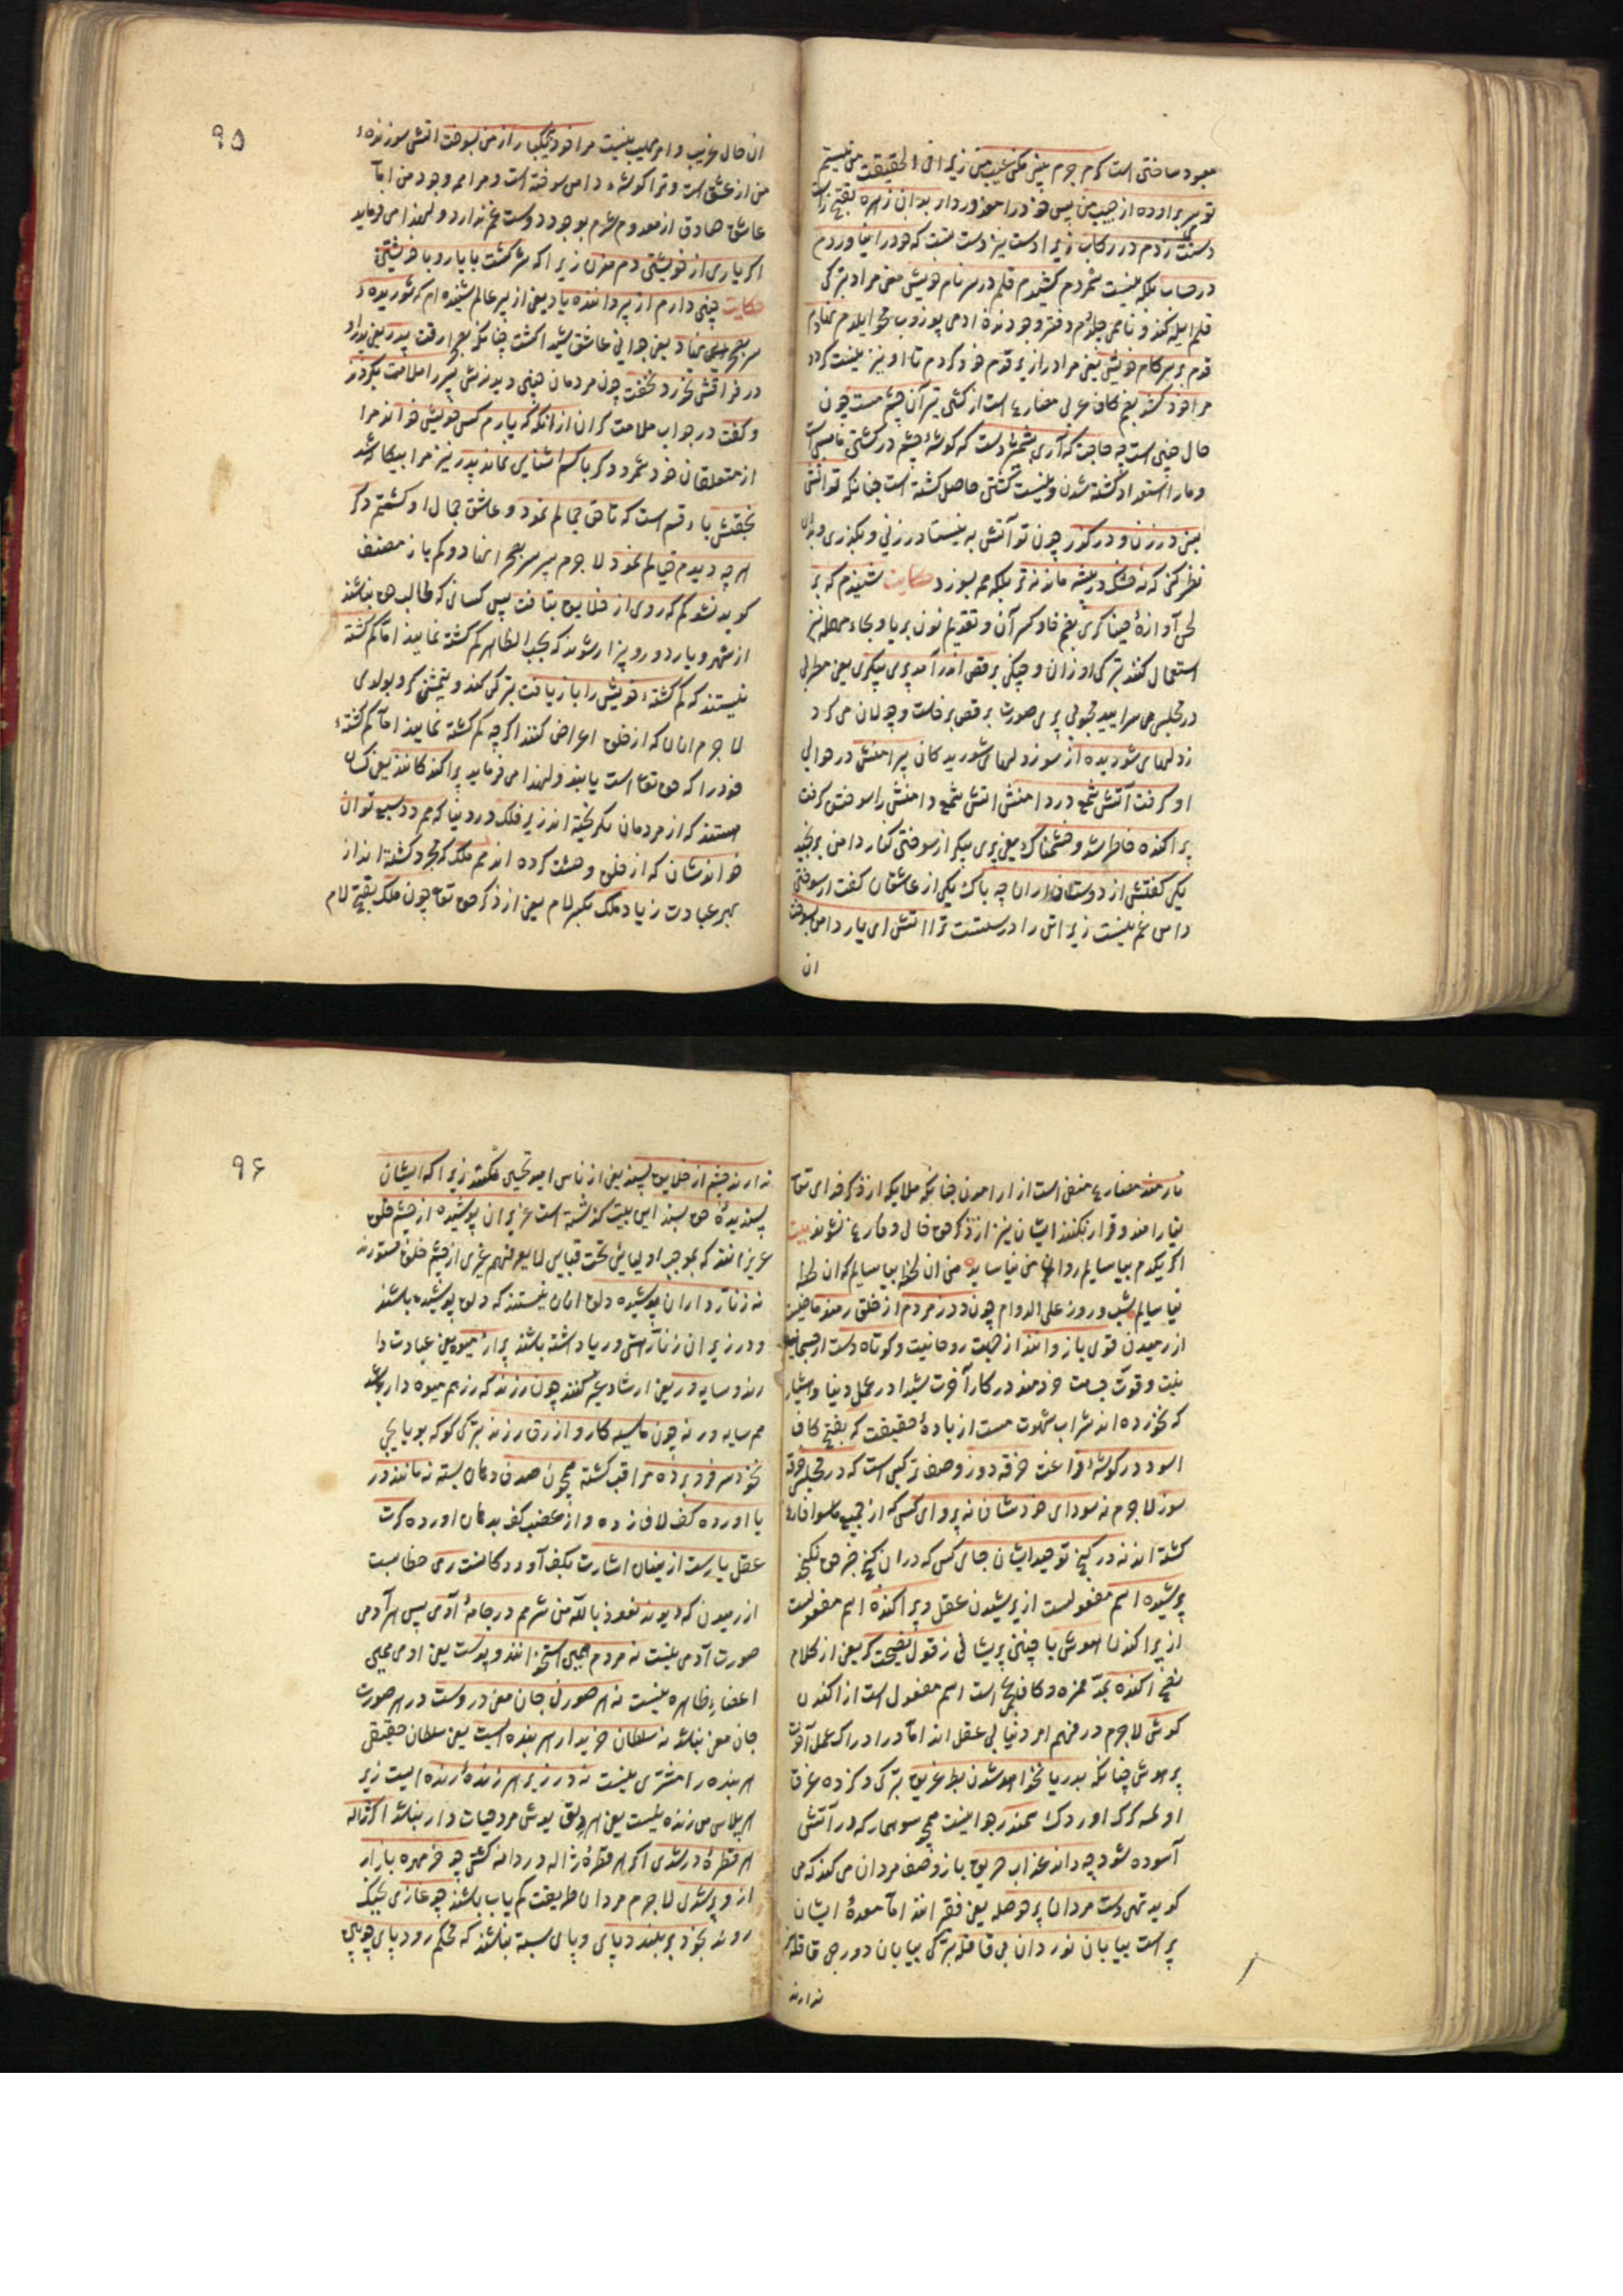 معبود ساختی است کرم جرم بینی مکن عیب من زیرا فی الحقیقت من نیستم
تویی سر براورده از جیب من پس خود را معزور دار بدان زهره بفتح زاست
دستت زدم در رکاب زیرا دست نیز دست تست که خود را نیاوردم
در حساب بلکه نیست شمردم کشیدم قلم در سر نام خویش معنی مراد بترکی
قلم ایله کندو نامی چلدم دفتر وجودنده ادمی یوزوب محو ایلدم نهادم
قدم بر سر کام خویش یعنی مراد را زیر قدم خود کردم تا او نیز نیست کردد
مرا خود کشد بضم کاف عربی مضارع است از کشتن تیر آن چشم مست چون
حال چنین است چه حاجت که آری بشمشیر دست که کوشه چشم در کشتن ما بس است
و ما را استعداد کشته شدن و نیست کشتن حاصل کشته است چنانکه تو آتش
بنی در زن و در کذر چون تو آتش به نیستان در زنی و بکذری و بدان
نظر کنی که نه خشک در بیشه ماند نه تر بلکه همه بسوزد حکایت شنیدم که بر
لحن آوازهٔ خنیاکری بضم خا و کسر آن و تقدیم نون بر یا و بحاء مهمله نیز
استعمال کنند بترکی اوزان و چنکی برقص اندر آمد پری پیکری یعنی مطربی
در مجلس می سرایید محبوبی پری صورت برقص برخاست و جولان می کرد
زدلهای شوریده از سوز دلهای شوریدکان پیرامنش در حوالی
او کرفت آتش شمع در دامنش اتش شمع دامنش را سوختن کرفت
پراکنده خاطر شد و خشمناک یعنی پری پیکر از سوختن کنار دامن برنجید
یکی کفتش از دوستداران چه باک یکی از عاشقان کفت از سوختن
دامن غم نیست زیرا تو را درستست ترا اتش ای یار دامن بسوخت
ان
۹۵
ان حال غریب و امر عجیب نیست مرا خود بیکبار از من بسوخت اتش سوزنده
من از عشق است و ترا کوشهٔ دامن سوخته است و مرا همه وجود من اما
عاشق صادق از معدوم شدم بوجود دوست غم ندارد و لهذا می فرماید
اکر یاری از خویشتن دم مزن زیرا که شرکست با یار و با خویشتن
حکایت چنین دارم از پیر داننده یاد یعنی از پیر عالم شنیده ام که شوریدهٔ
سر بصحرا نهاد یعنی جوانی عاشق شیدا کشت چنانکه بصحرا رفت پدر یعنی پدر او
در فراقش نخورد و نخفت چون مردمان چنین دیدندش پسر را ملامت بکردند
و کفت در جواب ملامت کران از انکه که یارم کس خویش خواند مرا
از متعلقان خود شمرد دکر با کسم اشنایی نماند پدر نیز مرا بیکانه شد
بحقش باء قسم است که تا حق جمالم نمود و عاشق جمال او کشتم دکر
هر چه دیدم خیالم نمود لا جرم پسر سر بصحرا نهاد و کم باز مصنف
کوید نشد کم که روی از خلایق بتافت پس کسانی که طالب حق باشند
از شهر و یار دور و بیزار شوند که بحسب الظاهر کم کشته نمایند اما کم کشته
نیستند که کم کشتهٔ خویش را باز یافت بترکی کندو یتمشنی کرو بولدی
لا جرم انان که از خلق اعراض کنند اکرچه کم کشته نمایند اما کم کشتهٔ
خود را که حق تعالی است یابند و لهذا می فرماید پراکندکانند یعنی کسان
هستند که از مردمان بکریخته اند زیر فلک و در دنیا که هم دد سبع توان
خواندشان که از خلق وحشت کرده اند هم ملک که مجرد کشته اند از
بهر عبادت زیاد ملک بکسر لام یعنی از ذکر حق تعالی چون ملک بفتح لام
نارمند مضارع منفی است از ارامدن چنانکه ملایکه از ذکر خدای تعالی
نیارامند و قرار نکنند ایشان نیز از ذکر حق خالی و فارغ نشوند بیت
اکر یکدم بیاسایم روان من نیاساید من ان لحظه بیاسایم که ان لحظه
نیاسایم شب و روز علی الدوام چون دد ز مردم از خلق رمند ماضیست
از رمیدن قوی بازوانند از جهت روحانیت و کوتاه دست از جسمانیت
نیت و قوت جسامت خردمند در کار آخرت شیدا در عمل دنیا و هشیار
که نخورده اند شراب شهوت مست از بادهٔ حقیقت که بفتح کاف
اسوده در کوشهٔ فراغت خرقه دوز وصف ترکیبی است که در مجلس خرقه
سوز لا جرم نه سودای خودشان نه پروای کس که از جمیع ما سوا فارغ
کشته اند نه در کنج توحیدایشان جای کس که در ان کنج جز حق نکنجد
پریشیده اسم مفعولست از پریشیدن عقل و پراکنده اسم مفعولست
از پراکندن هوش با چنین پریشانی ز قول نصیحت کر یعنی از کلام
نصح اکنده بمد همزه و کاف عجمی است اسم مفعول است از اکندن
کوش لا جرم در فهم امر دنیا بی عقل اند اما در ادراک عمل آخرت
پر هوش چنانکه بدریا نخواهد شدن بط غریق بترکی دکزده غرق
اولمه کرک اوردک سمندر هوا نیست همچو سوسمار که در آتش
آسوده شود چه داند عذاب حریق باز وصف مردان می کند که می
کوید تهی دست مردان پر حوصله یعنی فقر انند اما معدهٔ ایشان
پر است بیابان نوردان بی قافله بترکی بیابان دورجی قافله
ندارند
۹۶
ندارند چشم از خلایق پسند یعنی از ناس امید تحسین نکنند زیرا که ایشان
پسندیدهٔ حق بسند این بیت کذشته است عزیزان پوشیده از چشم خلق
عزیزانند که بموجب اولیایی تحت قبایی لا یعرفهم غیری از چشم خلق مستورند
نه زنار داران پوشیده دلق انان نیستند که دلق پوشیده باشند
و در زیر ان زنار شید و ریا داشته باشند پر از میوه یعنی عبادت دا
رند و سایه ور یعنی ارشاد غیر کنند چون رزند که رزهم میوه دار باشد
هم سایه ور نه چون ما سیه کار و ازرق رزند بترکی کوک بویایجی
بخود سر فرو برده مراقب کشته همچون صدف دهان بسته نه مانند در
یا اورده کف لاف زده و از غضب کف بدهان اورده کرت
عقل یارست از ینان اشارت بکیف آورد کانست رمی خطا بست
از رمیدن که دیوند نعوذ بالله من شرهم در جامهٔ آدمی پس هر آدمی
صورت آدمی نیست نه مردم همین استخوانند و پوست یعنی ادمی همین
اعضاء ظاهره نیست نه هر صورتی جان معنی دروست در هر صورت
جان معنی نباشد نه سلطان خریدار هر بنده ایست یعنی سلطان حقیقی
هر بنده را مشتری نیست نه در زیر هر ژندهٔ زنده ایست زیر
هر پلاس می زنده نیست یعنی هر دلق پوش مرد حیات دار نباشد اکر ژاله
هر قطرهٔ در شدی اکر هر قطرهٔ ژاله در دانه کشتی چو خرمهره بازار
از و پر شدی لا جرم مردان طریقت کم یاب باشند چو غازی بخیک
روند بخود بر نبندد پای و پای بسته نباشند که محکم رود پای چوبین